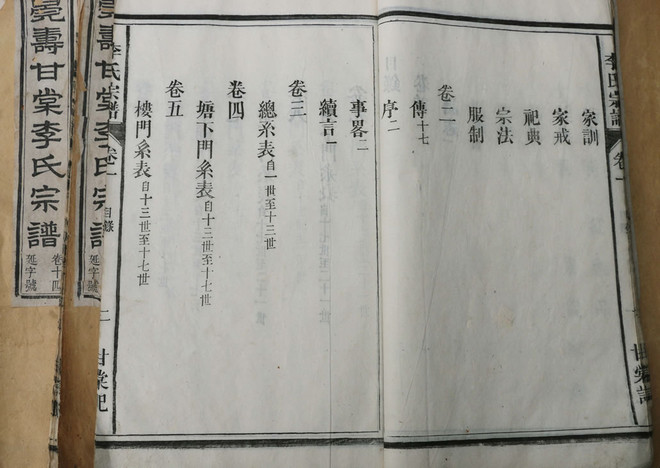 李氏宗譜
卷一
家訓
家戒
祀典
宗法
服制
卷二
傳十七
序二
事畧二
續言一
卷三
總系表自一世至十三世
卷四
塘下門系表自十三世至十七世
卷五
樓門系表自十三世至十七世
李氏宗譜
卷一
目錄
二
甘棠
壽甘棠李氏宗譜
延字號
壽甘棠李氏宗譜
卷十四
延字號